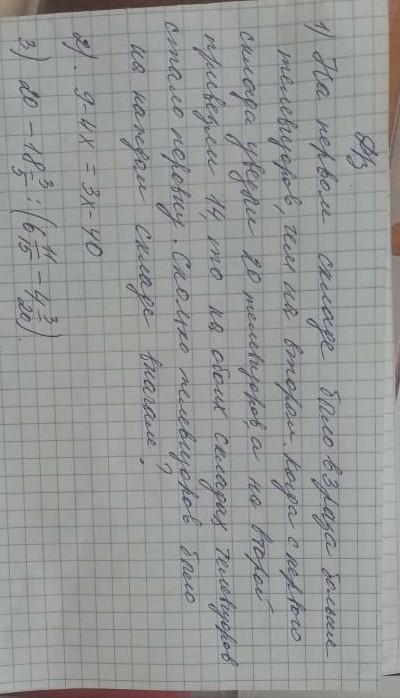 Д/З
1) На первом складе было в 3 раза больше
телевизоров, чем на втором. Когда с первого
склада увезли 20 телевизоров, а на второй
привезли 14, то на обоих складах телевизоров
стало поровну. Сколько телевизоров было
на каждом складе вначале?
2). 9-4x = 3x-40
3) 20 - 18 3/5 : (6 11/15 - 4 3/20).